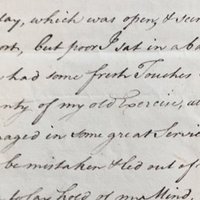 day, which was open, & sun
ort, but poor I sat in a ba
had some fresh Touches
nty of my old Exercise, a
naged in some great Service
be mistaken & led out of
to lay hold of my Mind,